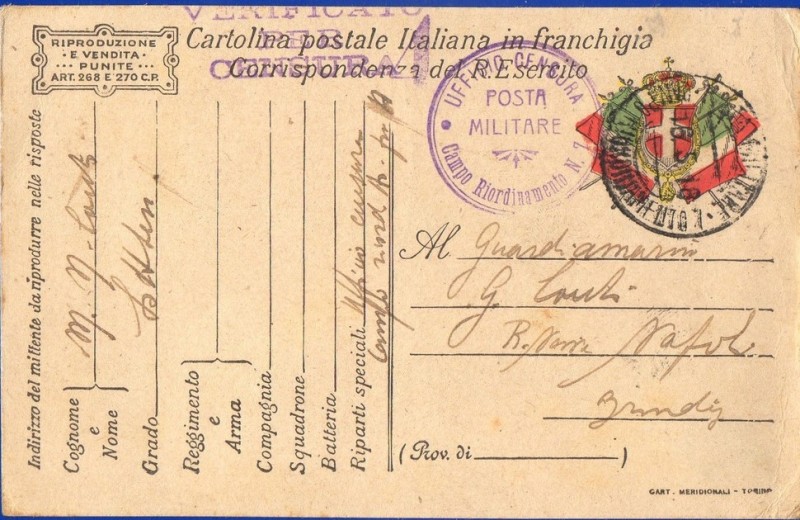 VERIFICATO
PER
CENSURA
RIPRODUZIONE
E VENDITA
PUNITE
ART. 268 E 270 C.P.
Cartolina postale Italiana in franchigia
Corrispondenza del R. Esercito
UFFICIO CENSURA
POSTA
MILITARE
Campo Riordinamento N. 1
Indirizzo del mittente da riprodurre nelle risposte
Cognome
e
Nome
Grado
Reggimento
e
Arma
Compagnia
Squadrone
Batteria
Riparti speciali Ufficio censura
Al Guardiamarina
G. Conti
R. Nave Napoli
Brindisi
(Prov. di )
CART. MERIDIONALI - TORINO